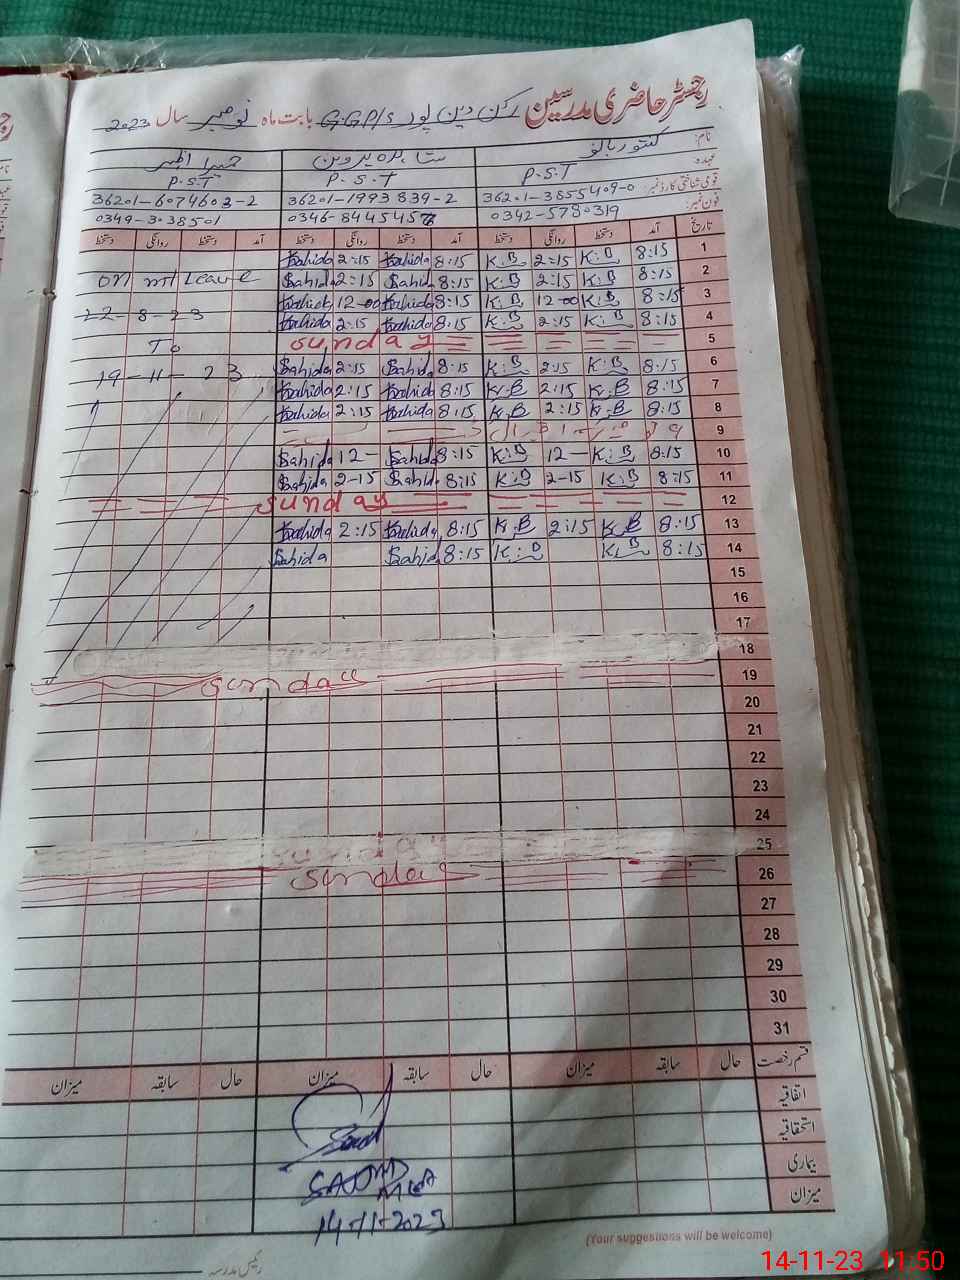 رجسٹر حاضری مدرسین رکن دین پور G.GP/S بابت ماہ نومبر سال 2023
نام:
عہدہ: P.S.T P.S.T P.S.T
قومی شناختی کارڈ نمبر: 36201-3855409-0 36201-1993839-2 36201-6074603-2
فون نمبر: 0342-5780319 0346-8445457 0349-3038501
تاریخ آمد دستخط روانگی دستخط آمد دستخط روانگی دستخط آمد دستخط روانگی دستخط
1 8:15 K:B 2:15 K:B 8:15 Sahida 2:15 Sahida
2 8:15 K:B 2:15 K:B 8:15 Sahida 2:15 Sahida on mtl Leave
3 8:15 K:B 12-00 K:B 8:15 Sahida 12-00 Sahida
4 8:15 K:B 2:15 K:B 8:15 Sahida 2:15 Sahida 22-8-23
5 sunday To
6 8:15 K:B 2:15 K:B 8:15 Sahida 2:15 Sahida 19-11-23
7 8:15 K:B 2:15 K:B 8:15 Sahida 2:15 Sahida
8 8:15 K.B 2:15 K.B 8:15 Sahida 2:15 Sahida
9
10 8:15 K:B 12- K:B 8:15 Sahida 12- Sahida
11 8:15 K:B 2-15 K:B 8:15 Sahida 2-15 Sahida
12 sunday
13 8:15 K.B 2:15 K.B 8:15 Sahida 2:15 Sahida
14 8:15 K:B K:B 8:15 Sahida Sahida
15
16
17
18
19 sunday
20
21
22
23
24
25
26 sunday
27
28
29
30
31
قسم رخصت حال سابقہ میزان حال سابقہ میزان حال سابقہ میزان
اتفاقیہ
استحقاقیہ
بیماری
میزان
MEA
14-11-2023
(Your suggestions will be welcome)
رئیس مدرسہ
14-11-23 11:50